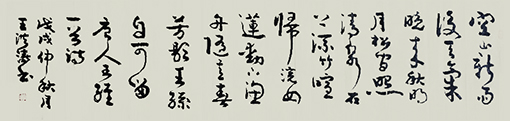 空山新雨
後天氣
晚來秋明
月松間照
清泉石
上流竹喧
歸浣女
蓮動下漁
舟隨意春
芳歇王孫
自可留
唐人王維
詩
戊戌仲秋月
王洪書